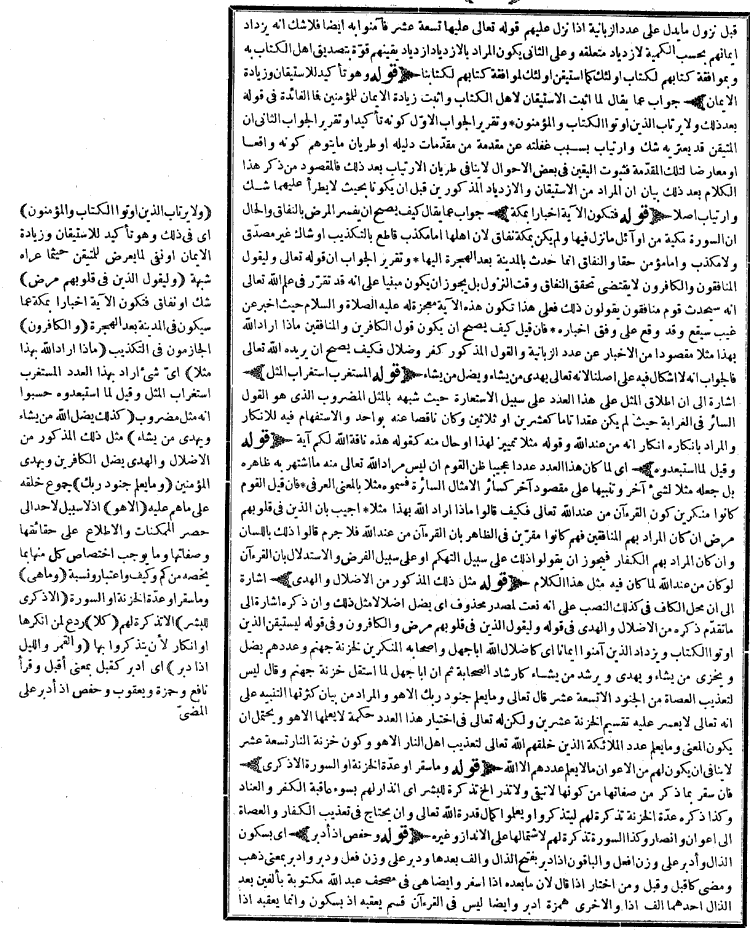 قبل نزول مايدل على عدد الزبانية اذا نزل عليهم قوله تعالى عليها تسعة عشر فآمنوا به ايضا فلاشك انه يزداد
ايمانهم بحسب الكمية لازدياد متعلقه وعلى الثانى يكون المراد بالازدياد ازدياد يقينهم قوة بتصديق اهل الكتاب به
وبموافقة كتابهم لكتاب اولئك كما استيقن اولئك لموافقة كتابهم لكتابنا ﴿قوله وهو تأكيد للاستيقان وزيادة
الايمان﴾ جواب عما يقال لما اثبت الاستيقان لاهل الكتاب واثبت زيادة الايمان للمؤمنين فما الفائدة فى قوله
بعد ذلك ولا يرتاب الذين اوتوا الكتاب والمؤمنون * وتقرير الجواب الاول كونه تأكيدا وتقرير الجواب الثانى ان
المتيقن قد يعتريه شك وارتياب بسبب غفلته عن مقدمة من مقدمات دليله او طريان مايتوهم كونه واقعا
او معارضا لتلك المقدمة فثبوت اليقين فى بعض الاحوال لاينافى طريان الارتياب بعد ذلك فالمقصود من ذكر هذا
الكلام بعد ذلك بيان ان المراد من الاستيقان والازدياد المذكورين قبل ان يكونا بحيث لايطرأ عليهما شك
وارتياب اصلا ﴿قوله فتكون الآية اخبارا بمكة﴾ جواب عما يقال كيف يصح ان يفسر المرض بالنفاق والحال
ان السورة مكية من اوآئل مانزل فيها ولم يكن بمكة نفاق لان اهلها اما مكذب قاطع بالتكذيب او شاك غير مصدق
ولا مكذب واما مؤمن حقا والنفاق انما حدث بالمدينة بعد الهجرة اليها * وتقرير الجواب ان قوله تعالى وليقول
المنافقون والكافرون لايقتضى تحقق النفاق وقت النزول بل يجوز ان يكون مبنيا على انه قد تقرر فى علم الله تعالى
انه سيحدث قوم منافقون يقولون ذلك فعلى هذا تكون هذه الآية معجزة له عليه الصلاة والسلام حيث اخبر عن
غيب سيقع وقد وقع على وفق اخباره * فان قيل كيف يصح ان يكون قول الكافرين والمنافقين ماذا اراد الله
بهذا مثلا مقصودا من الاخبار عن عدد الزبانية والقول المذكور كفر وضلال فكيف يصح ان يريده الله تعالى
فالجواب انه لا اشكال فيه على اصلنا لانه تعالى يهدى من يشاء ويضل من يشاء ﴿قوله المستغرب استغراب المثل﴾
اشارة الى ان اطلاق المثل على هذا العدد على سبيل الاستعارة حيث شبهه بالمثل المضروب الذى هو القول
السائر فى الغرابة حيث لم يكن عقدا تاما كعشرين او ثلاثين وكان ناقصا عنه بواحد والاستفهام فيه للانكار
والمراد بانكاره انكار انه من عند الله وقوله مثلا تمييز لهذا او حال منه كقوله هذه ناقة الله لكم آية ﴿قوله
وقيل لما استبعدوه﴾ اى لما كان هذا العدد عددا عجيبا ظن القوم ان ليس مراد الله تعالى منه ما اشتهر به ظاهره
بل جعله مثلا لشىء آخر وتنبيها على مقصود آخر كسائر الامثال السائرة فسموه مثلا بالمعنى العرفى * فان قيل القوم
كانوا منكرين كون القرءآن من عند الله تعالى فكيف قالوا ماذا اراد الله بهذا مثلا * اجيب بان الذين فى قلوبهم
مرض ان كان المراد بهم المنافقين فهم كانوا مقرّين فى الظاهر بان القرءآن من عند الله فلا جرم قالوا ذلك باللسان
وان كان المراد بهم الكفار فيجوز ان يقولوا ذلك على سبيل التهكم او على سبيل الفرض والاستدلال بان القرءآن
لو كان من عند الله لما كان فيه مثل هذا الكلام ﴿قوله مثل ذلك المذكور من الاضلال والهدى﴾ اشارة
الى ان محل الكاف فى كذلك النصب على انه نعت لمصدر محذوف اى يضل اضلالا مثل ذلك وان ذكره اشارة الى
ماتقدم ذكره من الاضلال والهدى فى قوله وليقول الذين فى قلوبهم مرض والكافرون وفى قوله ليستيقن الذين
اوتوا الكتاب ويزداد الذين آمنوا ايمانا اى كاضلال الله اباجهل واصحابه المنكرين لخزنة جهنم وعددهم يضل
ويخزى من يشاء ويهدى ويرشد من يشاء كارشاد الصحابة ثم ان اباجهل لما استقل خزنة جهنم وقال ليس
لتعذيب العصاة من الجنود الاتسعة عشر قال تعالى ومايعلم جنود ربك الا هو والمراد من بيان كثرتها التنبيه على
انه تعالى لايعسر عليه تقسيم الخزنة عشرين ولكن له تعالى فى اختيار هذا العدد حكمة لايعلمها الا هو ويحتمل ان
يكون المعنى ومايعلم عدد الملائكة الذين خلقهم الله تعالى لتعذيب اهل النار الا هو وكون خزنة النار تسعة عشر
لاينافى ان يكون لهم من الاعوان مالايعلم عددهم الا الله ﴿قوله وماسقر او عدة الخزنة او السورة الا ذكرى﴾
فان سقر بما ذكر من صفاتها من كونها لاتبقى ولاتذر الخ تذكرة للبشر اى انذار لهم بسوء عاقبة الكفر والعناد
وكذا ذكر عدة الخزنة تذكرة لهم ليتذكروا ويعلموا كمال قدرة الله تعالى وان يحتاج فى تعذيب الكفار والعصاة
الى اعوان وانصار وكذا السورة تذكرة لهم لاشتمالها على الانذار وغيره ﴿قوله وحفص اذ أدبر﴾ اى بسكون
الذال وأدبر على وزن افعل والباقون اذا دبر بفتح الذال والف بعدها ودبر على وزن فعل ودبر وادبر بمعنى ذهب
ومضى كاقبل وقبل ومن اختار اذا قال لان مابعده اذا اسفر وايضا هى فى مصحف عبد الله مكتوبة بألفين بعد
الذال احدهما الف اذا والاخرى همزة ادبر وايضا ليس فى القرءآن قسم يعقبه اذ بسكون وانما يعقبه اذا
(ولا يرتاب الذين اوتوا الكتاب والمؤمنون)
اى فى ذلك وهو تأكيد للاستيقان وزيادة
الايمان اونفى لمايعرض للمتيقن حيثما عراه
شبهة (وليقول الذين فى قلوبهم مرض)
شك او نفاق فتكون الآية اخبارا بمكة عما
سيكون فى المدينة بعد الهجرة (والكافرون)
الجازمون فى التكذيب (ماذا اراد الله بهذا
مثلا) اىّ شىء اراد بهذا العدد المستغرب
استغراب المثل وقيل لما استبعدوه حسبوا
انه مثل مضروب (كذلك يضل الله من يشاء
ويهدى من يشاء) مثل ذلك المذكور من
الاضلال والهدى يضل الكافرين ويهدى
المؤمنين (ومايعلم جنود ربك) جموع خلقه
على ماهم عليه (الا هو) اذ لاسبيل لاحد الى
حصر الممكنات والاطلاع على حقائقها
وصفاتها ومايوجب اختصاص كل منها بما
يخصه من كم وكيف واعتبار ونسبة (وماهى)
وماسقر او عدّة الخزنة او السورة (الا ذكرى
للبشر) الا تذكرة لهم (كلا) ردع لمن انكرها
او انكار لأن يتذكروا بها (والقمر والليل
اذا دبر) اى ادبر كقبل بمعنى أقبل وقرأ
نافع وحمزة ويعقوب وحفص اذ أدبر على
المضىّ